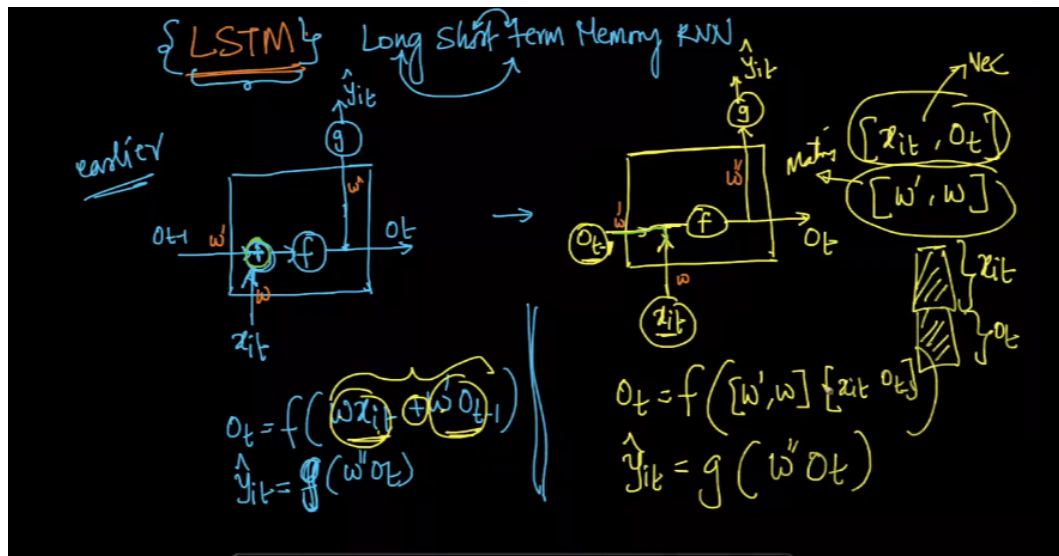 {LSTM} Long Short Term Memory RNN
earlier
ŷit
g
w"
Ot-1
w'
+
f
Ot
w
xit
Ot = f(wxit + w'Ot-1)
ŷit = g(w"Ot)
→
ŷit
g
w"
Ot-
w'
f
Ot
w
xit
Vec
[xit, Ot]
Matrix
[w', w]
xit
Ot
Ot = f([w', w] [xit Ot])
ŷit = g(w"Ot)